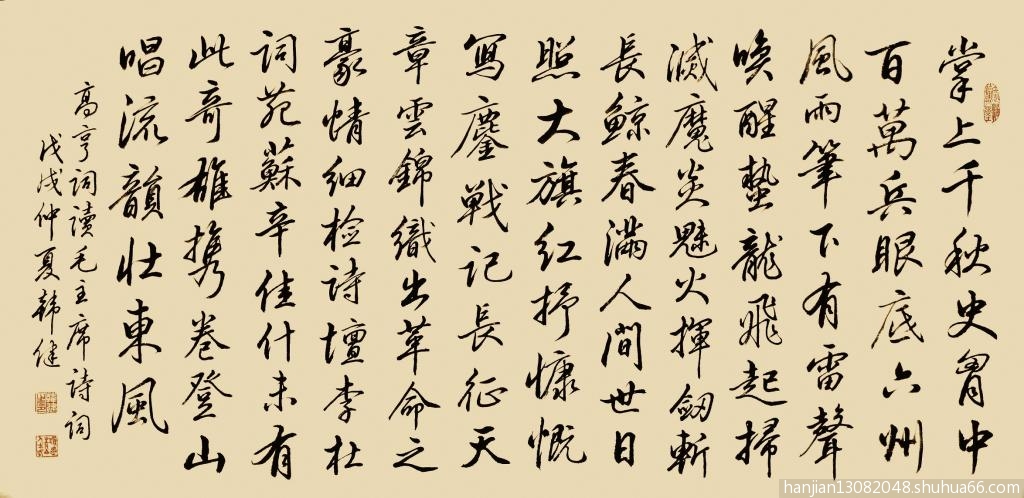 掌上千秋史胷中
百萬兵眼底六州
風雨筆下有雷聲
喚醒蟄龍飛起掃
滅魔炎魅火揮劔斬
長鯨春滿人間世日
照大旗紅抒慷慨
寫鏖戰記長征天
章雲錦織出革命之
豪情细检詩壇李杜
詞苑蘇辛佳什未有
此奇雄携卷登山
唱流韻壮東風
高亨詞讀毛主席詩詞
戊戌仲夏韩健
hanjian13082048.shuhua66.com